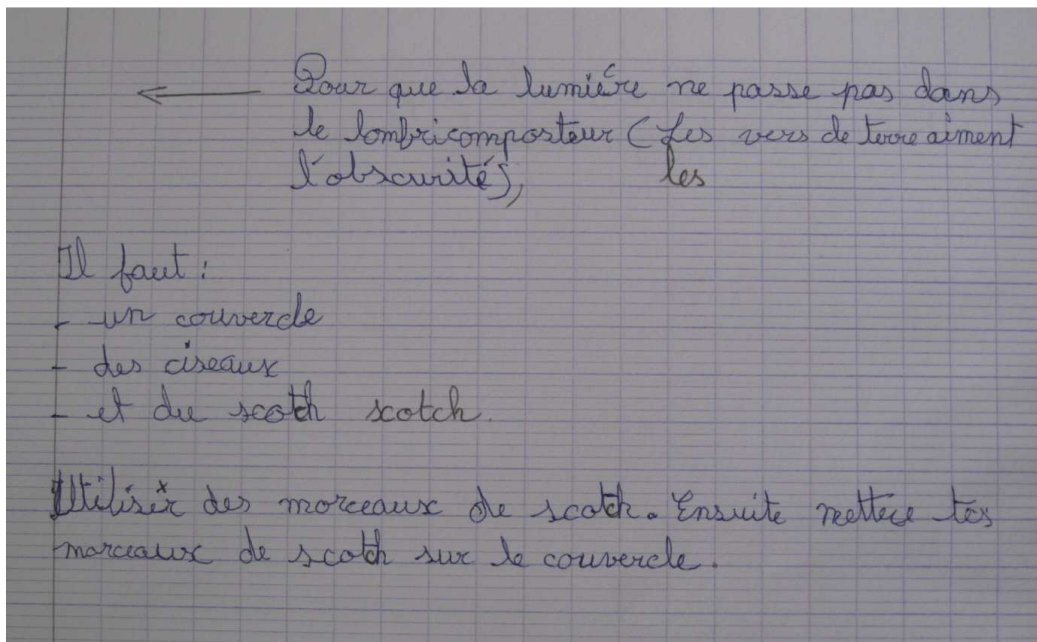 Pour que la lumière ne passe pas dans
le lombricomposteur (Les vers de terre aiment
l'obscurité), les
Il faut :
- un couvercle
- des ciseaux
- et du scotch scotch.
Utiliser des morceaux de scotch. Ensuite mettre tes
morceaux de scotch sur le couvercle.